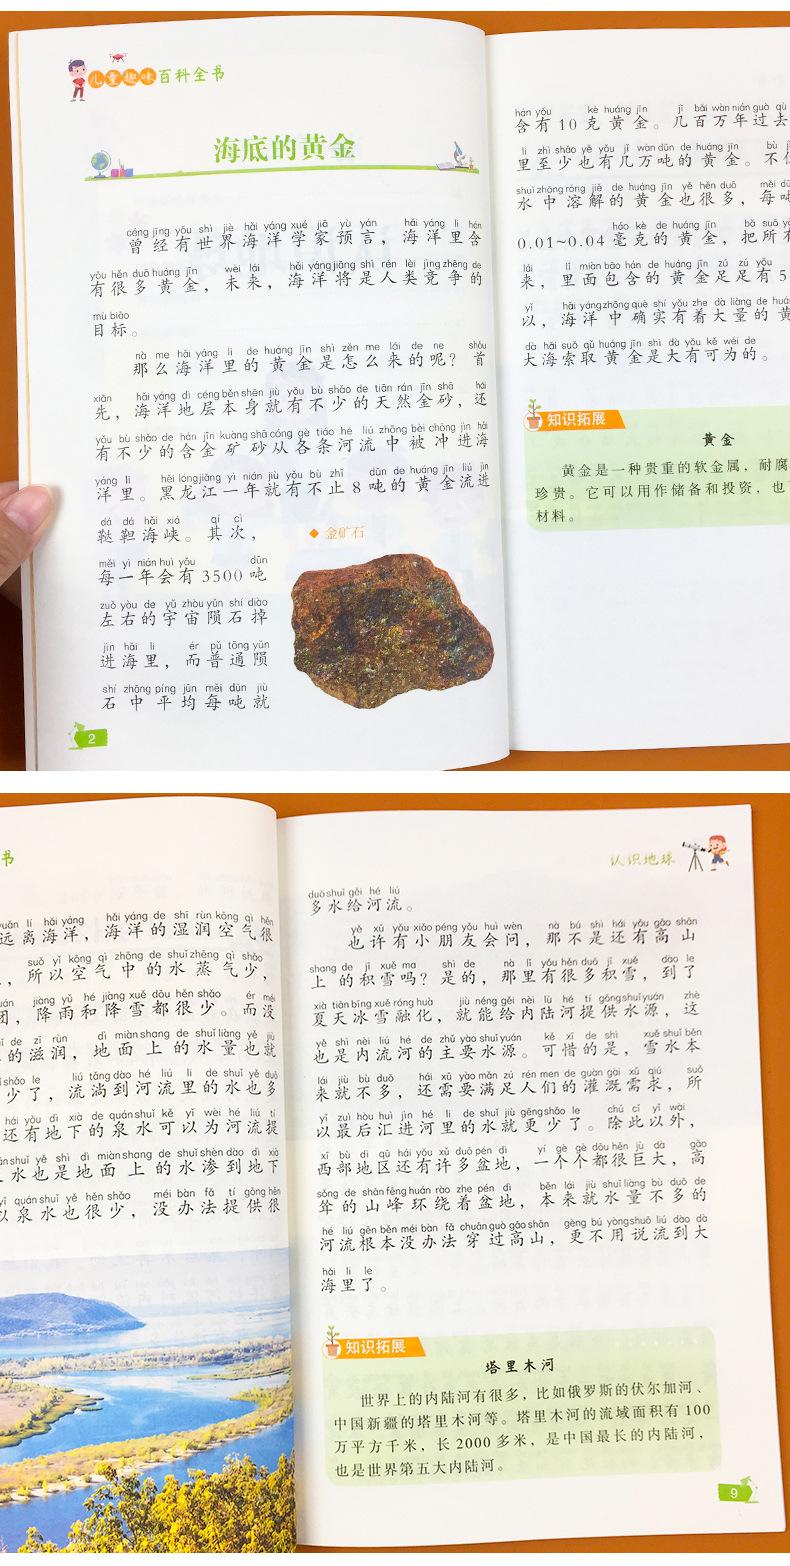 儿童趣味百科全书
海底的黄金
céng jīng yǒu shì jiè hǎi yáng xué jiā yù yán hǎi yáng lǐ hán
曾经有世界海洋学家预言，海洋里含
yǒu hěn duō huáng jīn wèi lái hǎi yáng jiāng shì rén lèi jìng zhēng de
有很多黄金，未来，海洋将是人类竞争的
mù biāo
目标。
nà me hǎi yáng li de huáng jīn shì zěn me lái de ne shǒu
那么海洋里的黄金是怎么来的呢？首
xiān hǎi yáng dì céng běn shēn jiù yǒu bù shǎo de tiān rán jīn shā hái
先，海洋地层本身就有不少的天然金砂，还
yǒu bù shǎo de hán jīn kuàng shā cóng gè tiáo hé liú zhōng bèi chōng jìn hǎi
有不少的含金矿砂从各条河流中被冲进海
yáng li hēi lóng jiāng yì nián jiù yǒu bù zhǐ dūn de huáng jīn liú jìn
洋里。黑龙江一年就有不止8吨的黄金流进
dá dá hǎi xiá qí cì
鞑靼海峡。其次，
měi yì nián huì yǒu dūn
每一年会有3500吨
zuǒ yòu de yǔ zhòu yǔn shí diào
左右的宇宙陨石掉
jìn hǎi li ér pǔ tōng yǔn
进海里，而普通陨
shí zhōng píng jūn měi dūn jiù
石中平均每吨就
金矿石
2
hán yǒu kè huáng jīn jǐ bǎi wàn nián guò qù
含有10克黄金。几百万年过去
li zhì shǎo yě yǒu jǐ wàn dūn de huáng jīn bù
里至少也有几万吨的黄金。不
shuǐ zhōng róng jiě de huáng jīn yě hěn duō měi dūn
水中溶解的黄金也很多，每吨
háo kè de huáng jīn bǎ suǒ yǒu
0.01~0.04毫克的黄金，把所有
lái lǐ miàn bāo hán de huáng jīn zú zú yǒu
来，里面包含的黄金足足有5
yǐ hǎi yáng zhōng què shí yǒu zhe dà liàng de huáng
以，海洋中确实有着大量的黄
dà hǎi suǒ qǔ huáng jīn shì dà yǒu kě wéi de
大海索取黄金是大有可为的。
知识拓展
黄金
黄金是一种贵重的软金属，耐腐
珍贵。它可以用作储备和投资，也
材料。
书
yuǎn lí hǎi yáng hǎi yáng de shī rùn kōng qì hěn
远离海洋，海洋的湿润空气很
suǒ yǐ kōng qì zhōng de shuǐ zhēng qì shǎo
，所以空气中的水蒸气少，
jiàng yǔ hé jiàng xuě dōu hěn shǎo ér méi
团，降雨和降雪都很少。而没
de zī rùn dì miàn shang de shuǐ liàng yě jiù
的滋润，地面上的水量也就
shǎo le liú tǎng dào hé liú li de shuǐ yě duō
少了，流淌到河流里的水也多
hái yǒu dì xià de quán shuǐ kě yǐ wèi hé liú tí
还有地下的泉水可以为河流提
shuǐ yě shì dì miàn shang de shuǐ shèn dào dì xià
水也是地面上的水渗到地下
yǐ quán shuǐ yě hěn shǎo méi bàn fǎ tí gōng hěn
以泉水也很少，没办法提供很
认识地球
duō shuǐ gěi hé liú
多水给河流。
yě xǔ yǒu xiǎo péng yǒu huì wèn nà bú shì hái yǒu gāo shān
也许有小朋友会问，那不是还有高山
shang de jī xuě ma shì de nà lǐ yǒu hěn duō jī xuě dào le
上的积雪吗？是的，那里有很多积雪，到了
xià tiān bīng xuě róng huà jiù néng gěi nèi lù hé tí gōng shuǐ yuán zhè
夏天冰雪融化，就能给内陆河提供水源，这
yě shì nèi liú hé de zhǔ yào shuǐ yuán kě xī de shì xuě shuǐ běn
也是内流河的主要水源。可惜的是，雪水本
lái jiù bù duō hái xū yào mǎn zú rén men de guàn gài xū qiú suǒ
来就不多，还需要满足人们的灌溉需求，所
yǐ zuì hòu huì jìn hé li de shuǐ jiù gèng shǎo le chú cǐ yǐ wài
以最后汇进河里的水就更少了。除此以外，
xī bù dì qū hái yǒu xǔ duō pén dì yí gè gè dōu hěn jù dà gāo
西部地区还有许多盆地，一个个都很巨大，高
sǒng de shān fēng huán rào zhe pén dì běn lái jiù shuǐ liàng bù duō de
耸的山峰环绕着盆地，本来就水量不多的
hé liú gēn běn méi bàn fǎ chuān guò gāo shān gèng bú yòng shuō liú dào dà
河流根本没办法穿过高山，更不用说流到大
hǎi li le
海里了。
知识拓展
塔里木河
世界上的内陆河有很多，比如俄罗斯的伏尔加河、
中国新疆的塔里木河等。塔里木河的流域面积有100
万平方千米，长2000多米，是中国最长的内陆河，
也是世界第五大内陆河。
9